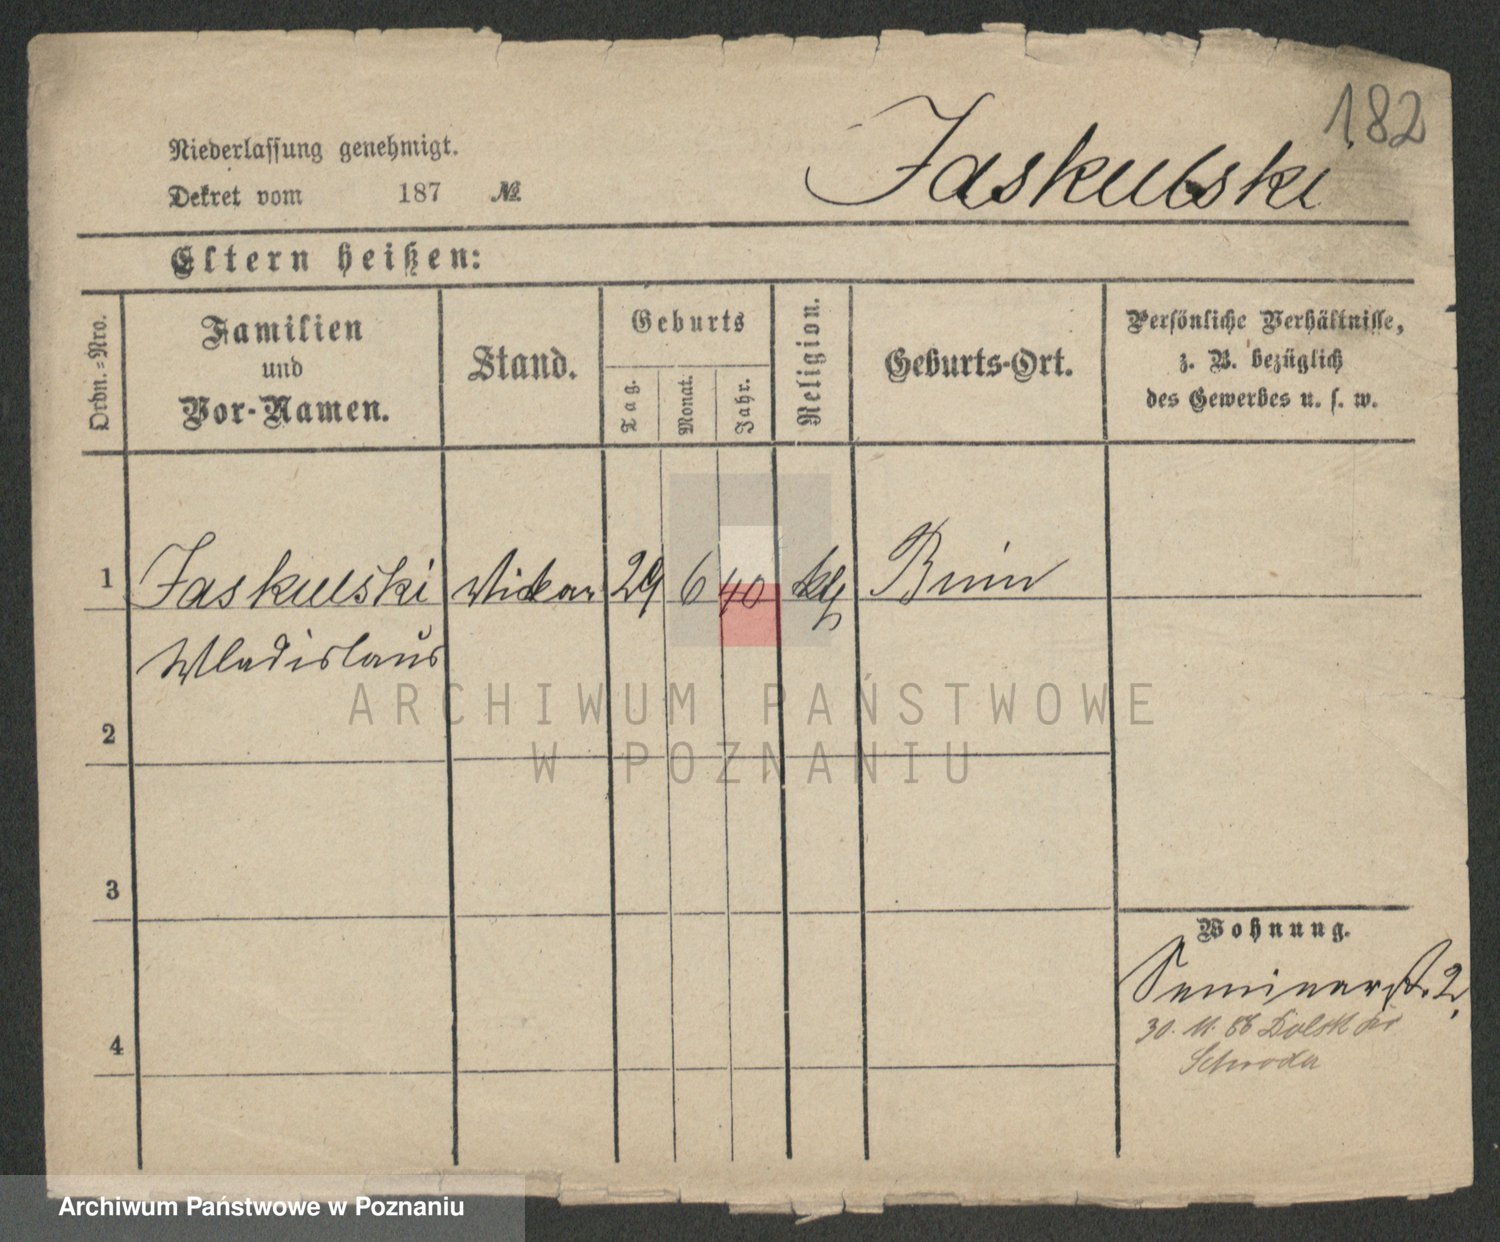 182
Jaskulski
Niederlassung genehmigt.
Dekret vom 187 №
Eltern heißen:
Ordn.-Nro.
Familien
und
Vor-Namen.
Stand.
Geburts
Tag.
Monat.
Jahr.
Religion.
Geburts-Ort.
Persönliche Verhältnisse,
z. B. bezüglich
des Gewerbes u. s. w.
1 Jaskulski Vickar 29 6 40 kth Bnin
Wladislaus
2
3
4
Wohnung.
Seminarst. 2.
30. 11. 88
Schroda
ARCHIWUM PAŃSTWOWE
W POZNANIU
Archiwum Państwowe w Poznaniu